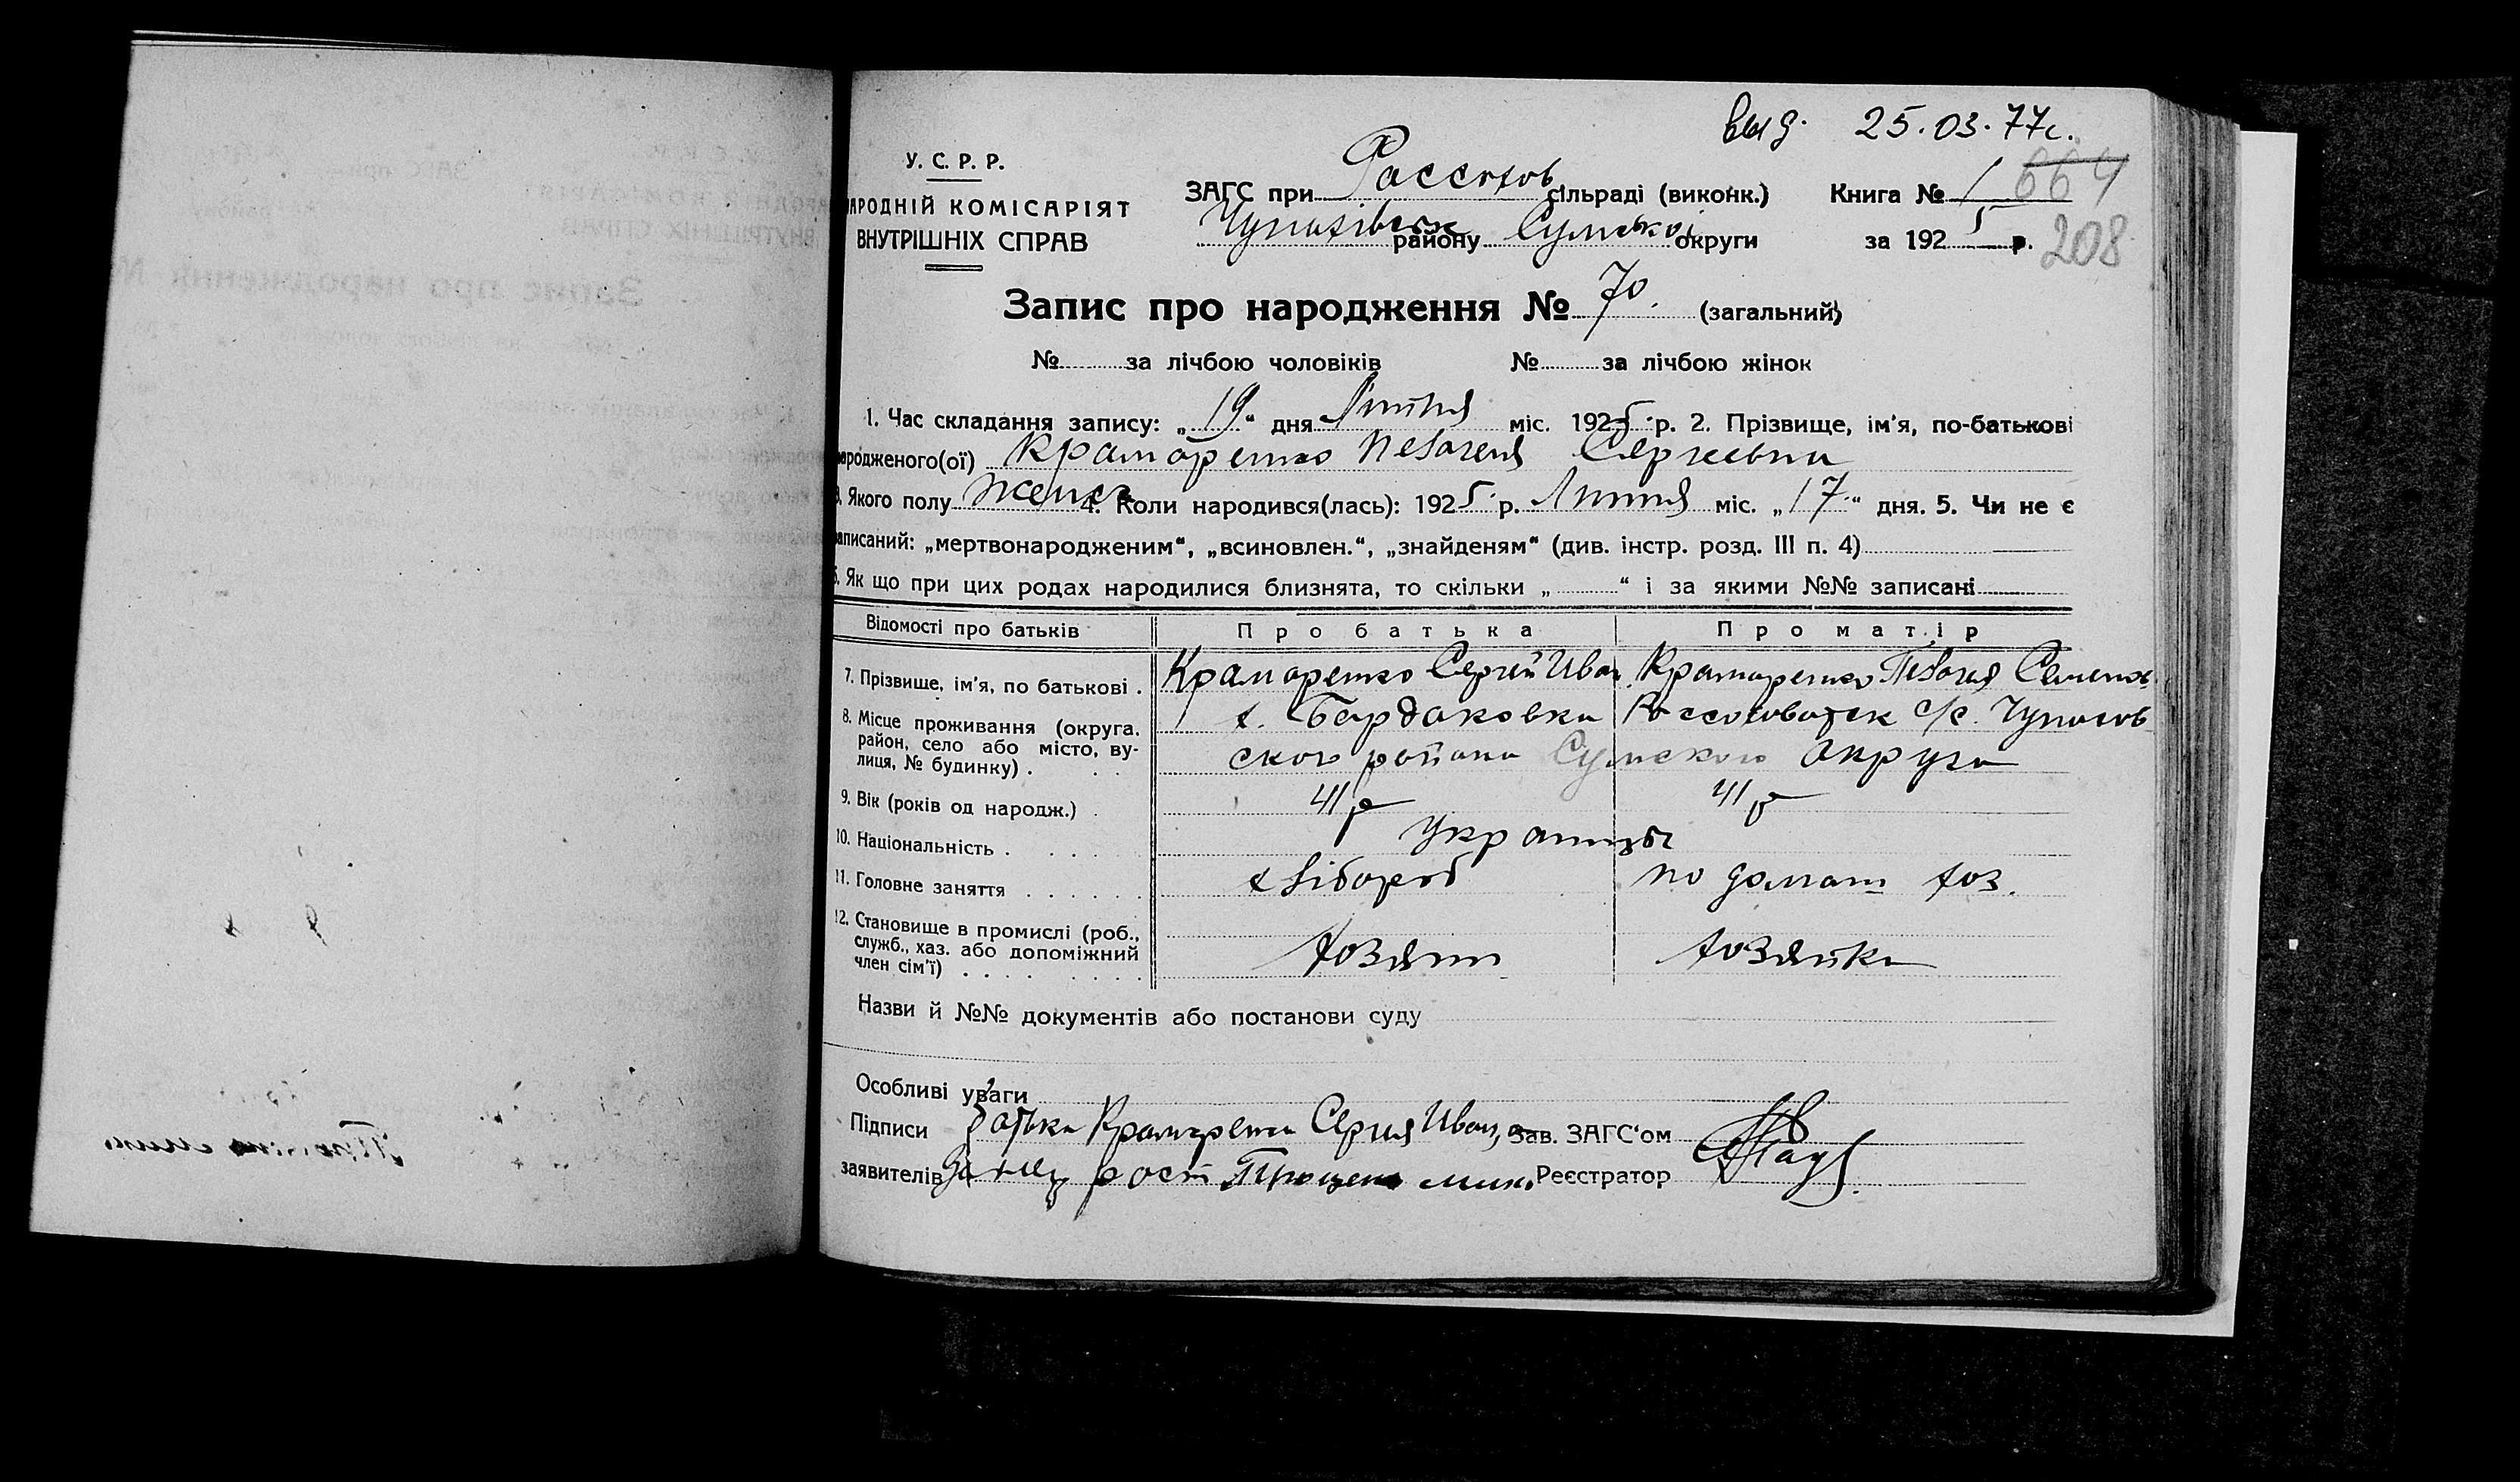 выд. 25.03.77г.
У. С. Р. Р.
АРОДНІЙ КОМІСАРІЯТ
ВНУТРІШНІХ СПРАВ
ЗАГС при Рассохов сільраді (виконк.) Книга № 1 664
району Сумської округи за 1925 р. 208
Запис про народження № 70. (загальний)
№ за лічбою чоловіків № за лічбою жінок
1. Час складання запису: „19“ дня Липня міс. 1925 р. 2. Прізвище, ім'я, по-батькові
ародженого(ої) Крамаренко Пелагея Сергиевна
3. Якого полу женск 4. Коли народився(лась): 1925 р. Липня міс. „17“ дня. 5. Чи не є
аписаний: „мертвонародженим“, „всиновлен.“, „знайденям“ (див. інстр. розд. III п. 4)
6. Як що при цих родах народилися близнята, то скільки „ “ і за якими №№ записані
Відомості про батьків Про батька Про матір
7. Прізвище, ім'я, по батькові . Крамаренко Сергей Иван. Крамаренко Пелагея Семенов
8. Місце проживання (округа, район, село або місто, вулиця, № будинку) . х. Бардаковка с/с. Чупахов
ского района Сумского округа
9. Вік (років од народж.) . 41 р 41 р
10. Національність . украинцы
11. Головне заняття хлібороб по домаш хоз.
12. Становище в промислі (роб., служб., хаз. або допоміжний член сім'ї) хозяин хозяйка
Назви й №№ документів або постанови суду
Особливі уваги
Підписи батька Крамаренка Сергия Иван, Зав. ЗАГС'ом
заявителів за нег рост Реєстратор